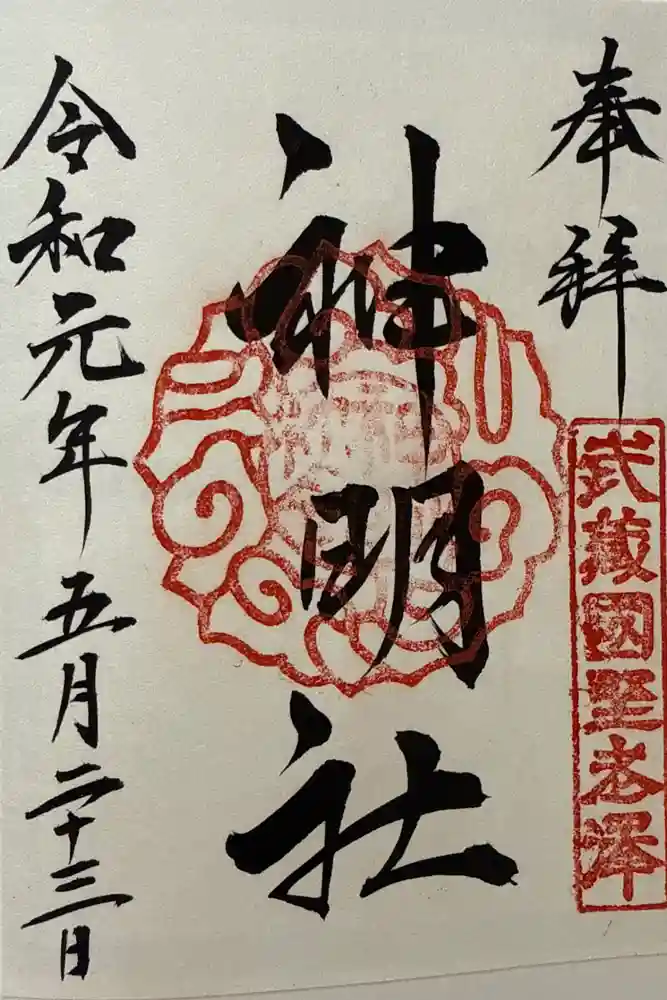 奉拝
武蔵國埜老澤
神明社
令和元年五月二十三日